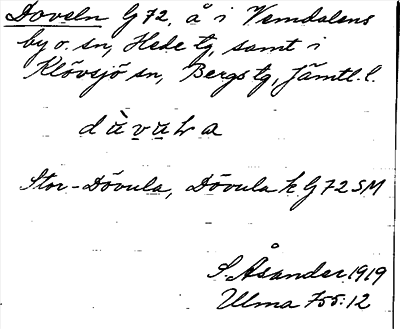 Doveln G 72, å i Vemdalens
by o. sn, Hede tg, samt i
Klövsjö sn, Bergs tg, Jämtl. l.
dùvuLa
Stor-Dövula, Dövula k G 72 SM
S. Åsander 1919
Ulma 755:12